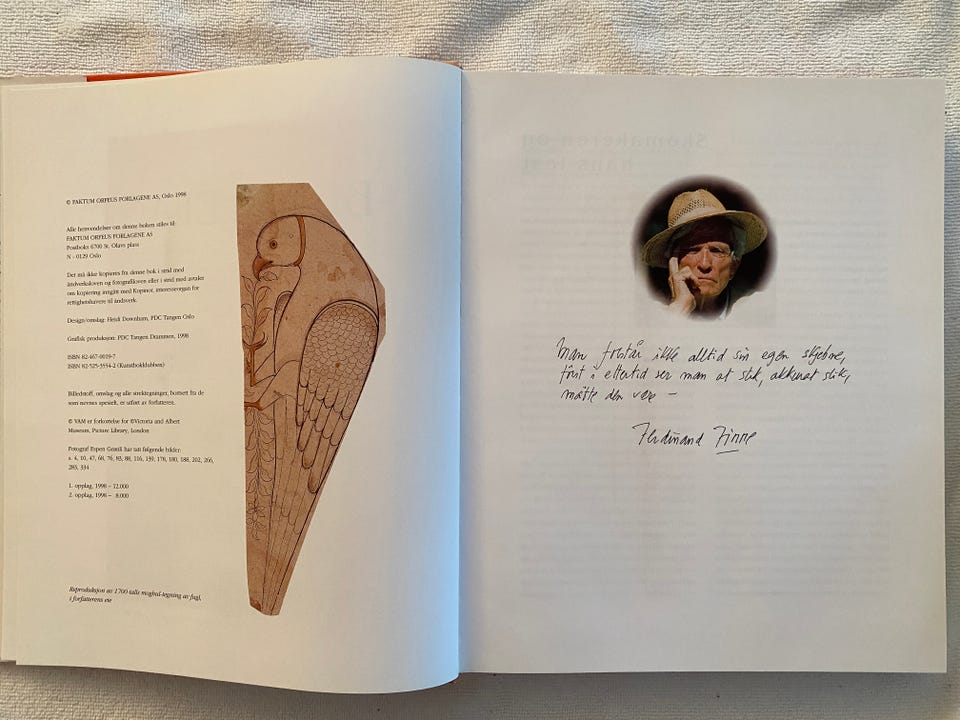 © FAKTUM ORFEUS FORLAGENE AS, Oslo 1998
Alle henvendelser om denne boken stiles til:
FAKTUM ORFEUS FORLAGENE AS
Postboks 6700 St. Olavs plass
N - 0129 Oslo
Det må ikke kopieres fra denne bok i strid med
åndverksloven og fotografiloven eller i strid med avtaler
om kopiering inngått med Kopinor, interesseorgan for
rettighetshavere til åndsverk.
Design/omslag: Heidi Downham, PDC Tangen Oslo
Grafisk produksjon: PDC Tangen Drammen, 1998
ISBN 82-467-0019-7
ISBN 82-525-3554-2 (Kunstbokklubben)
Billedstoff, omslag og alle strektegninger, bortsett fra de
som nevnes spesielt, er utført av forfatteren.
© VAM er forkortelse for ©Victoria and Albert
Museum, Picture Library, London
Fotograf Espen Grønli har tatt følgende bilder:
s. 4, 10, 47, 68, 76, 83, 88, 116, 139, 178, 180, 188, 202, 266,
283, 334
1. opplag, 1998 – 12.000
2. opplag, 1998 – 8.000
Reproduksjon av 1700 talls moghal-tegning av fugl,
i forfatterens eie
Skomakeren og
hans lest
Man forstår ikke alltid sin egen skjebne,
først i ettertid ser man at slik, akkurat slik,
måtte den være –
Ferdinand Finne